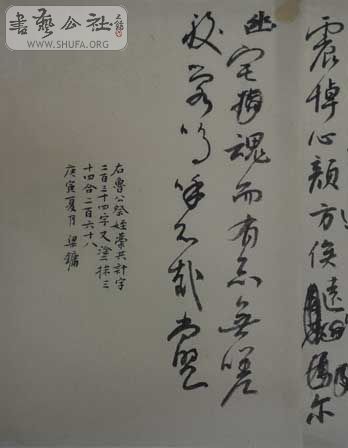 書藝公社
WWW.SHUFA.ORG
震悼心顏方俟遠爾
幽宅魂而有知無嗟
久客嗚呼哀哉尚饗
右魯公祭姪藁共計字
二百三十四字又塗抹三
十四合二百六十八
庚寅夏月 梁